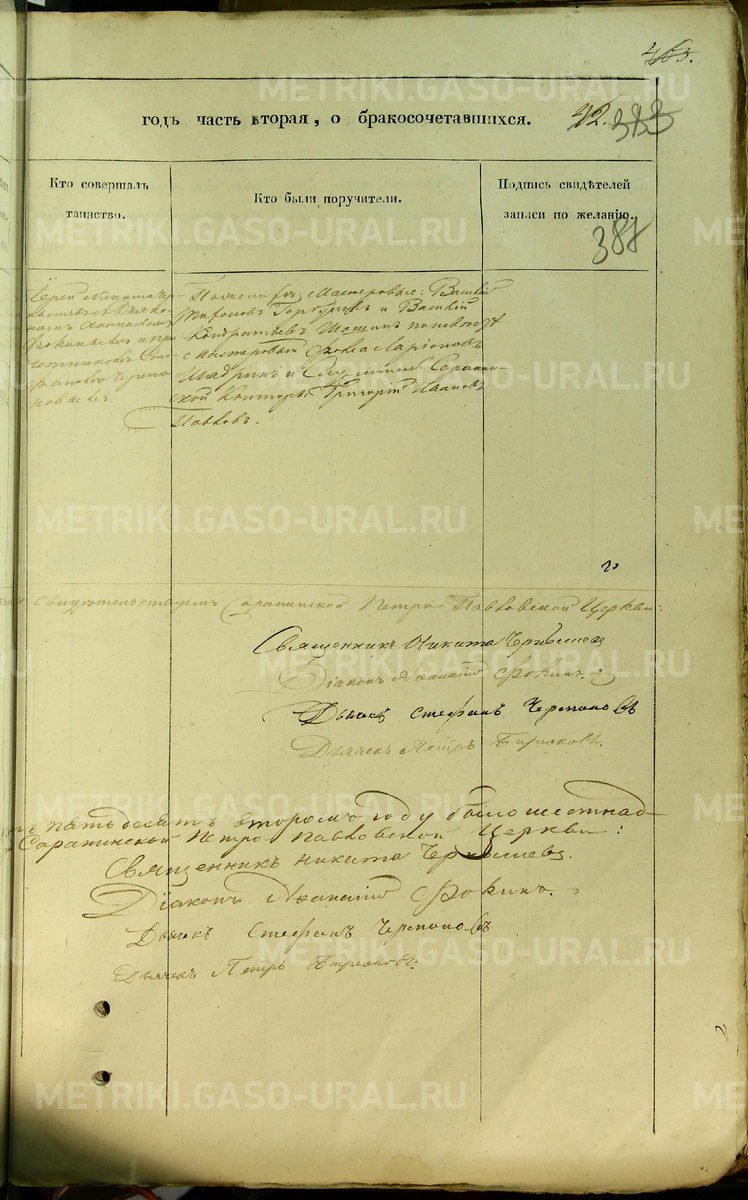 463.
годъ часть вторая, о бракосочетавшихся. 42. 383
Кто совершалъ
таинство.
Кто были поручители.
Подпись свидѣтелей
записи по желанію.
387
Іерей Никита Чер
Діакономъ Афанасіемъ
Фокинымъ и при
четникомъ Сте
фаномъ Черепа
новымъ
По женихѣ: Мастеровые: Василій
Трифоновъ Горбуновъ и Василій
Кондратьевъ Шошинъ по невѣстѣ
мастеровой Фока Ларіоновъ
и Служитель Сарапин
ской Конторы Григорій Ивановъ
Павловъ.
свидѣтельствуемъ Сарапинской Петро Павловской Церкви:
Священникъ Никита Чернышевъ
Діаконъ Афанасій Фокинъ.
Дьячекъ Стефанъ Черепановъ
Дьячекъ Петръ Бирюковъ.
пятьдесятъ второмъ году было шестнад
Сарапинской Петро-Павловской Церкви:
Священникъ Никита Чернышевъ.
Діаконъ Афанасій Фокинъ.
Дьячекъ Стефанъ Черепановъ
Дьячекъ Петръ Бирюковъ.
METRIKI.GASO-URAL.RU